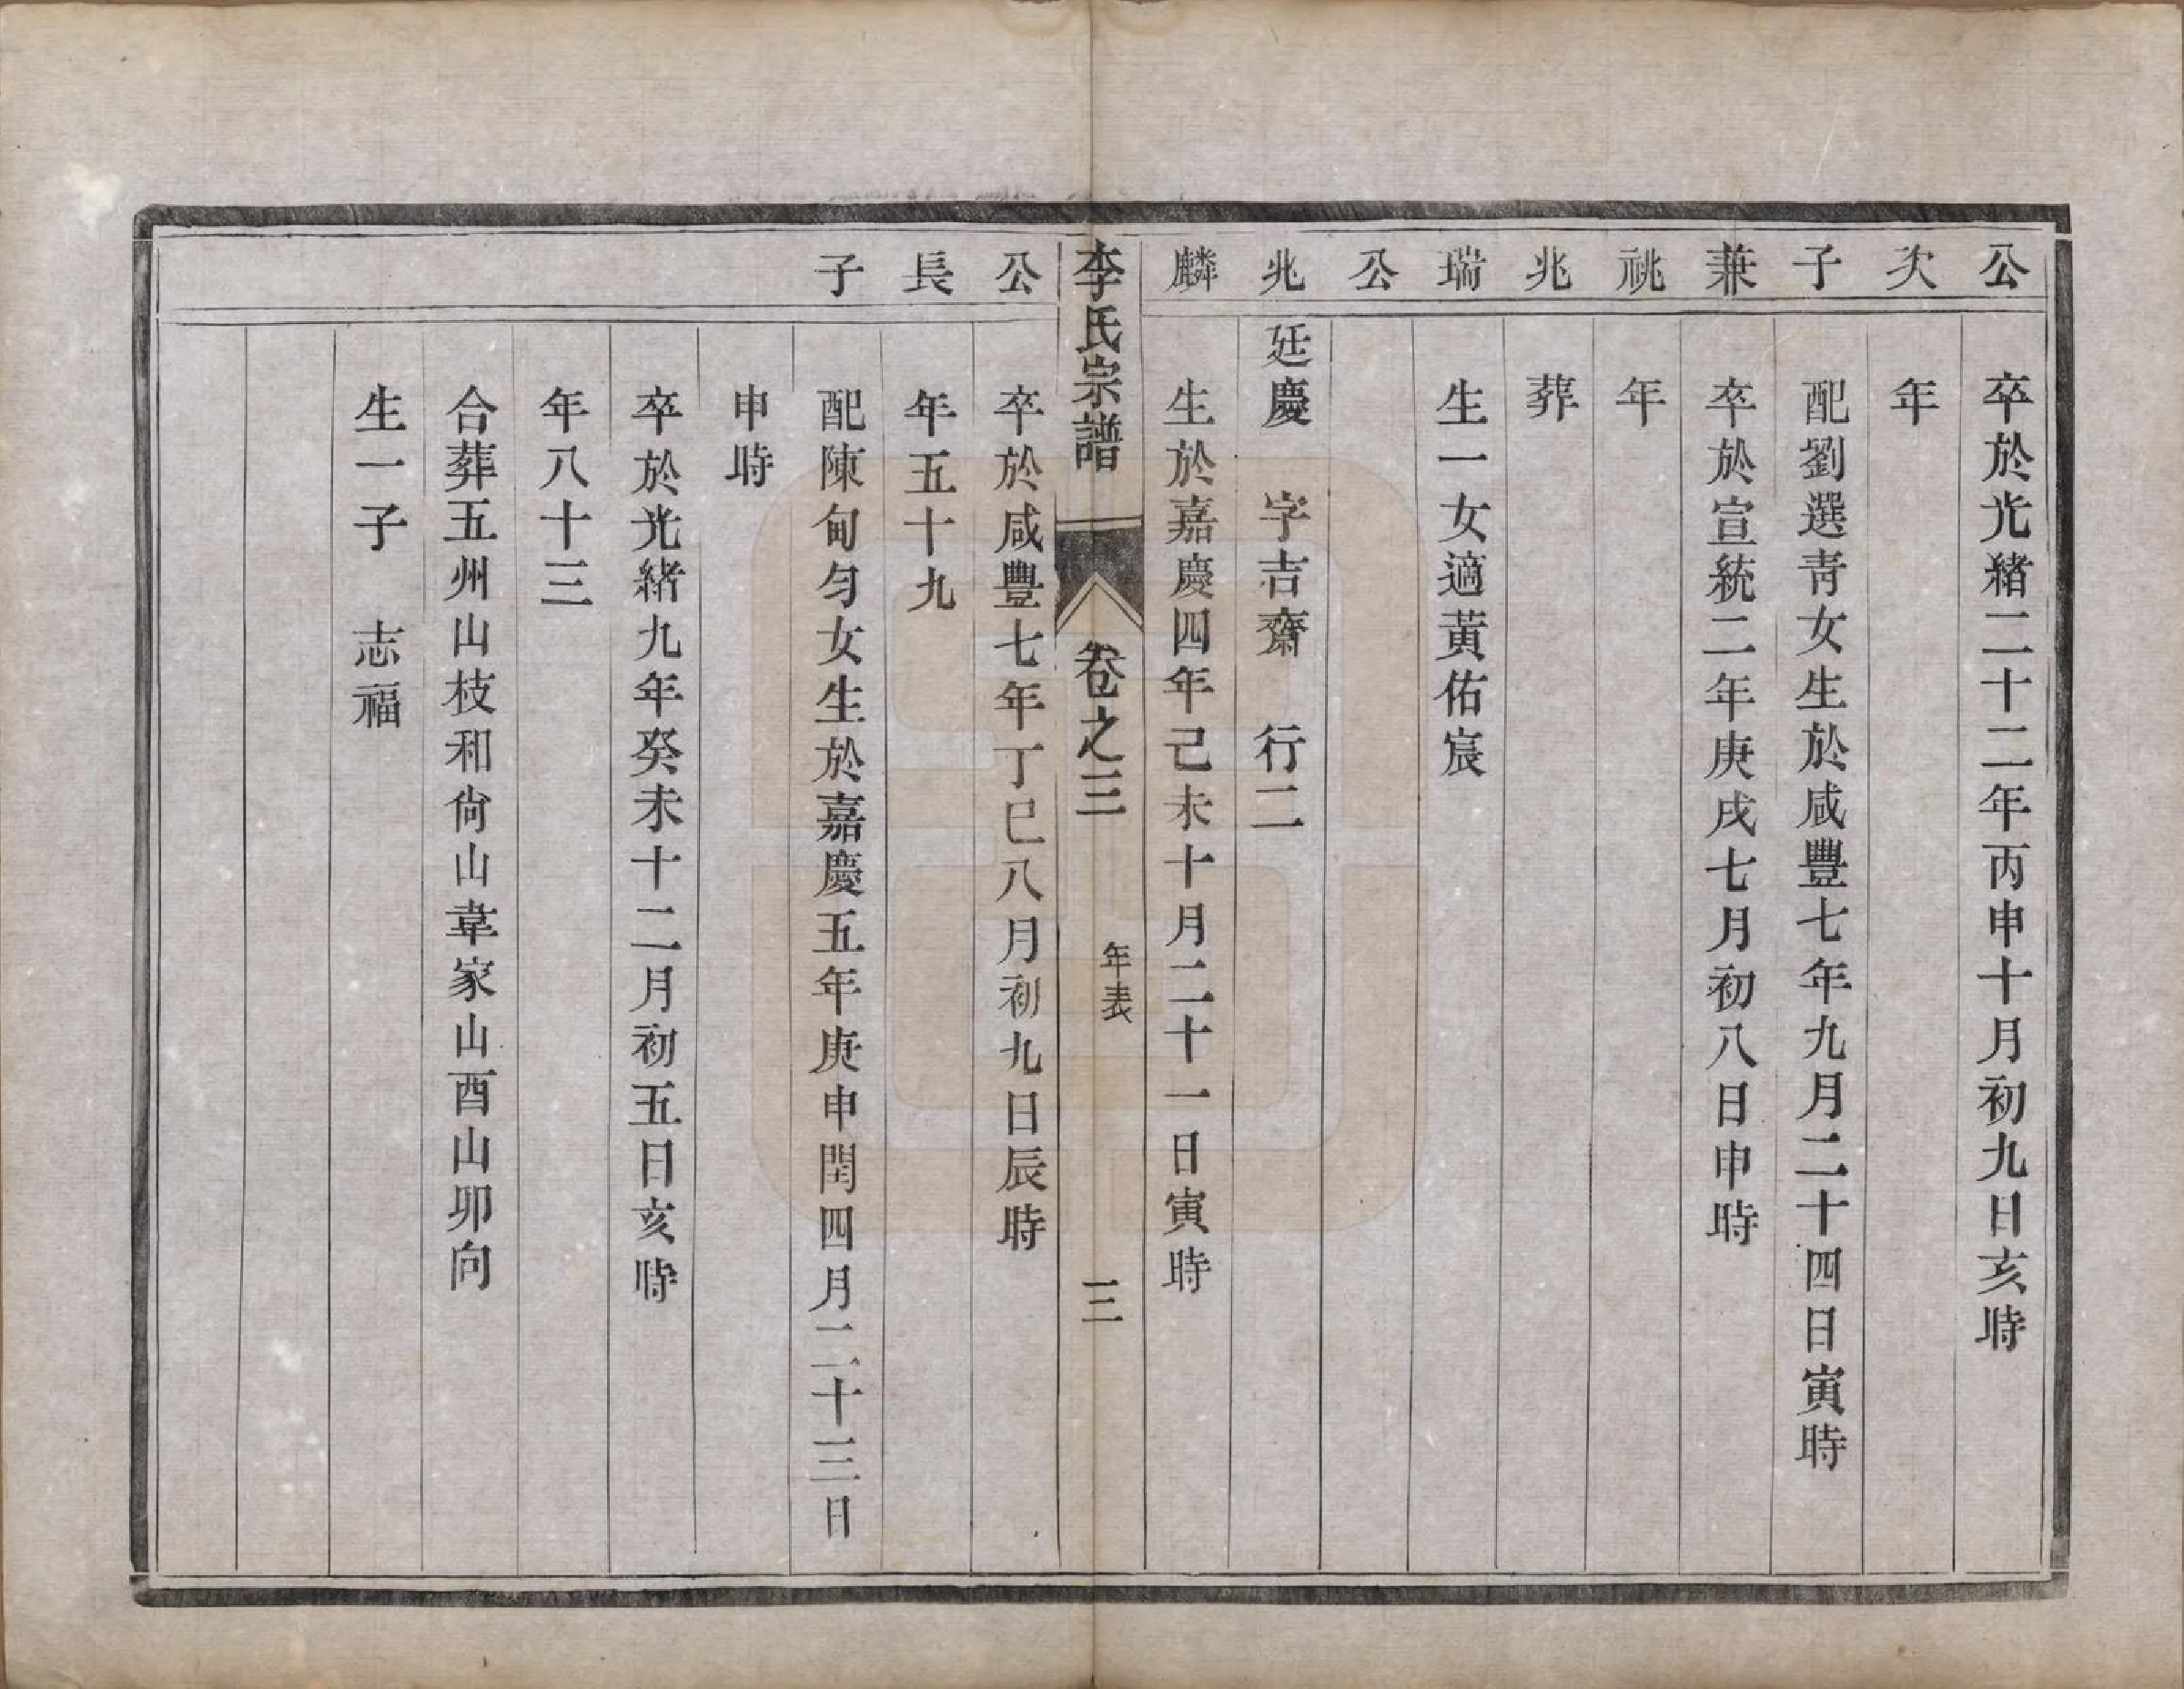 公次子兼祧兆瑞公
卒於光緒二十二年丙申十月初九日亥時
年
配劉選青女生於咸豐七年九月二十四日寅時
卒於宣統二年庚戌七月初八日申時
年
葬
生一女適黃佑宸
兆麟
廷慶 字吉齋 行二
生於嘉慶四年己未十月二十一日寅時
李氏宗譜 卷之三 年表 三
公長子
卒於咸豐七年丁巳八月初九日辰時
年五十九
配陳甸匀女生於嘉慶五年庚申閏四月二十三日
申時
卒於光緒九年癸未十二月初五日亥時
年八十三
合葬五州山枝和尙山韋家山酉山卯向
生一子 志福